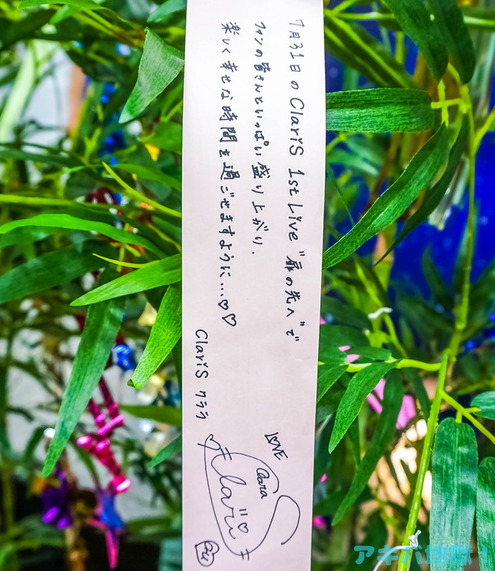 7月31日のClariS 1st Live “扉の先へ”で
ファンの皆さんといっぱい盛り上がり、
楽しく幸せな時間を過ごせますように…♡♡
ClariS クララ
LOVE
Clara
ClariS